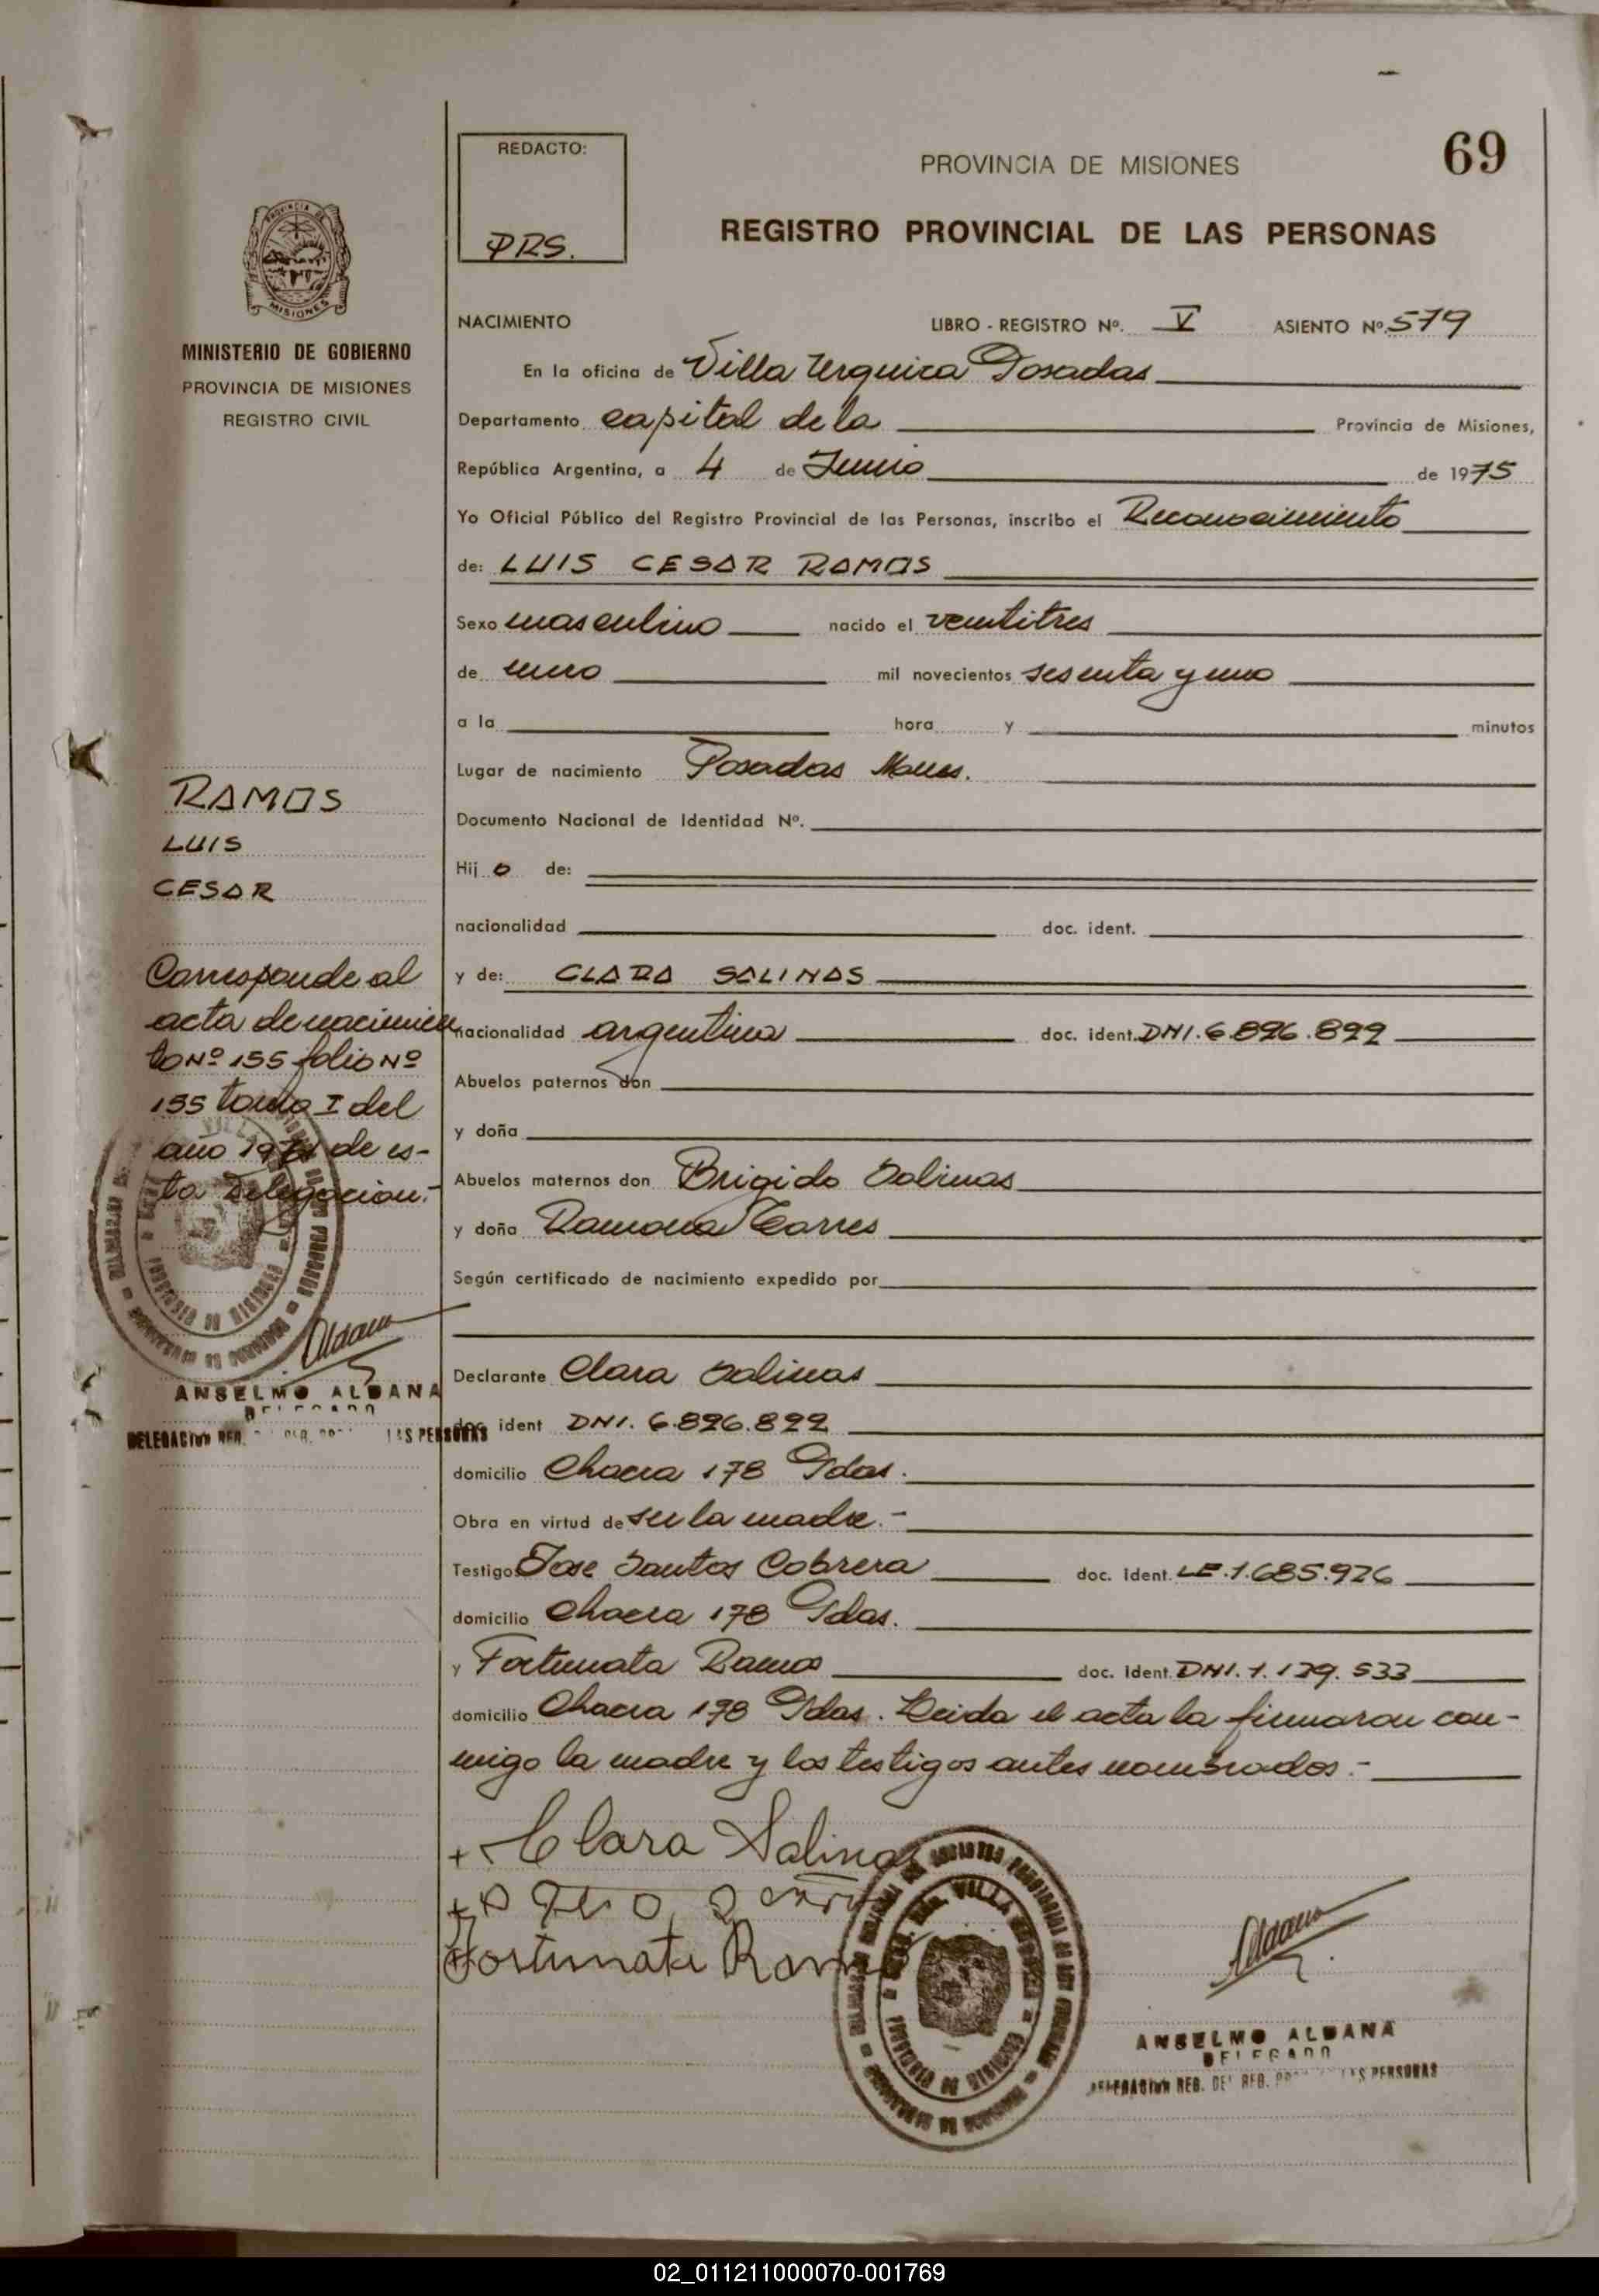 69
REDACTO:
PRS.
PROVINCIA DE MISIONES
REGISTRO PROVINCIAL DE LAS PERSONAS
PROVINCIA DE
MISIONES
MINISTERIO DE GOBIERNO
PROVINCIA DE MISIONES
REGISTRO CIVIL
NACIMIENTO LIBRO - REGISTRO Nº. V ASIENTO Nº. 579
En la oficina de Villa Urquiza Posadas
Departamento capital de la Provincia de Misiones,
República Argentina, a 4 de Junio de 1975
Yo Oficial Público del Registro Provincial de las Personas, inscribo el Reconocimiento
de: LUIS CESAR RAMOS
Sexo masculino nacido el veintitres
de enero mil novecientos sesenta y uno
a la hora y minutos
Lugar de nacimiento Posadas Mnes.
Documento Nacional de Identidad Nº.
Hij o de:
nacionalidad doc. ident.
y de: CLARA SALINAS
nacionalidad argentina doc. ident. DNI. 6.826.822
Abuelos paternos don
y doña
Abuelos maternos don Brigido Salinas
y doña Ramona Torres
Según certificado de nacimiento expedido por
Declarante Clara Salinas
doc. ident DNI. 6.826.822
domicilio Chacra 178 Pdas.
Obra en virtud de ser la madre.-
Testigos Jose Santos Cabrera doc. ident. LE. 1.685.926
domicilio Chacra 178 Pdas.
y Fortunata Ramos doc. ident. DNI. 1.129.533
domicilio Chacra 178 Pdas. Leida el acta la firmaron con-
migo la madre y los testigos antes nombrados.-
RAMOS
LUIS
CESAR
Corresponde al
acta de nacimien
to Nº 155 folio Nº
155 tomo I del
año 1961 de es-
ta Delegacion.-
Aldana
ANSELMO ALDANA
DELEGADO
DELEGACION REG. LAS PERSONAS
+ Clara Salinas
Fortunata Ramos
VILLA URQUIZA
Aldana
ANSELMO ALDANA
DELEGADO
DELEGACION REG. DEL REG. LAS PERSONAS
02_011211000070-001769